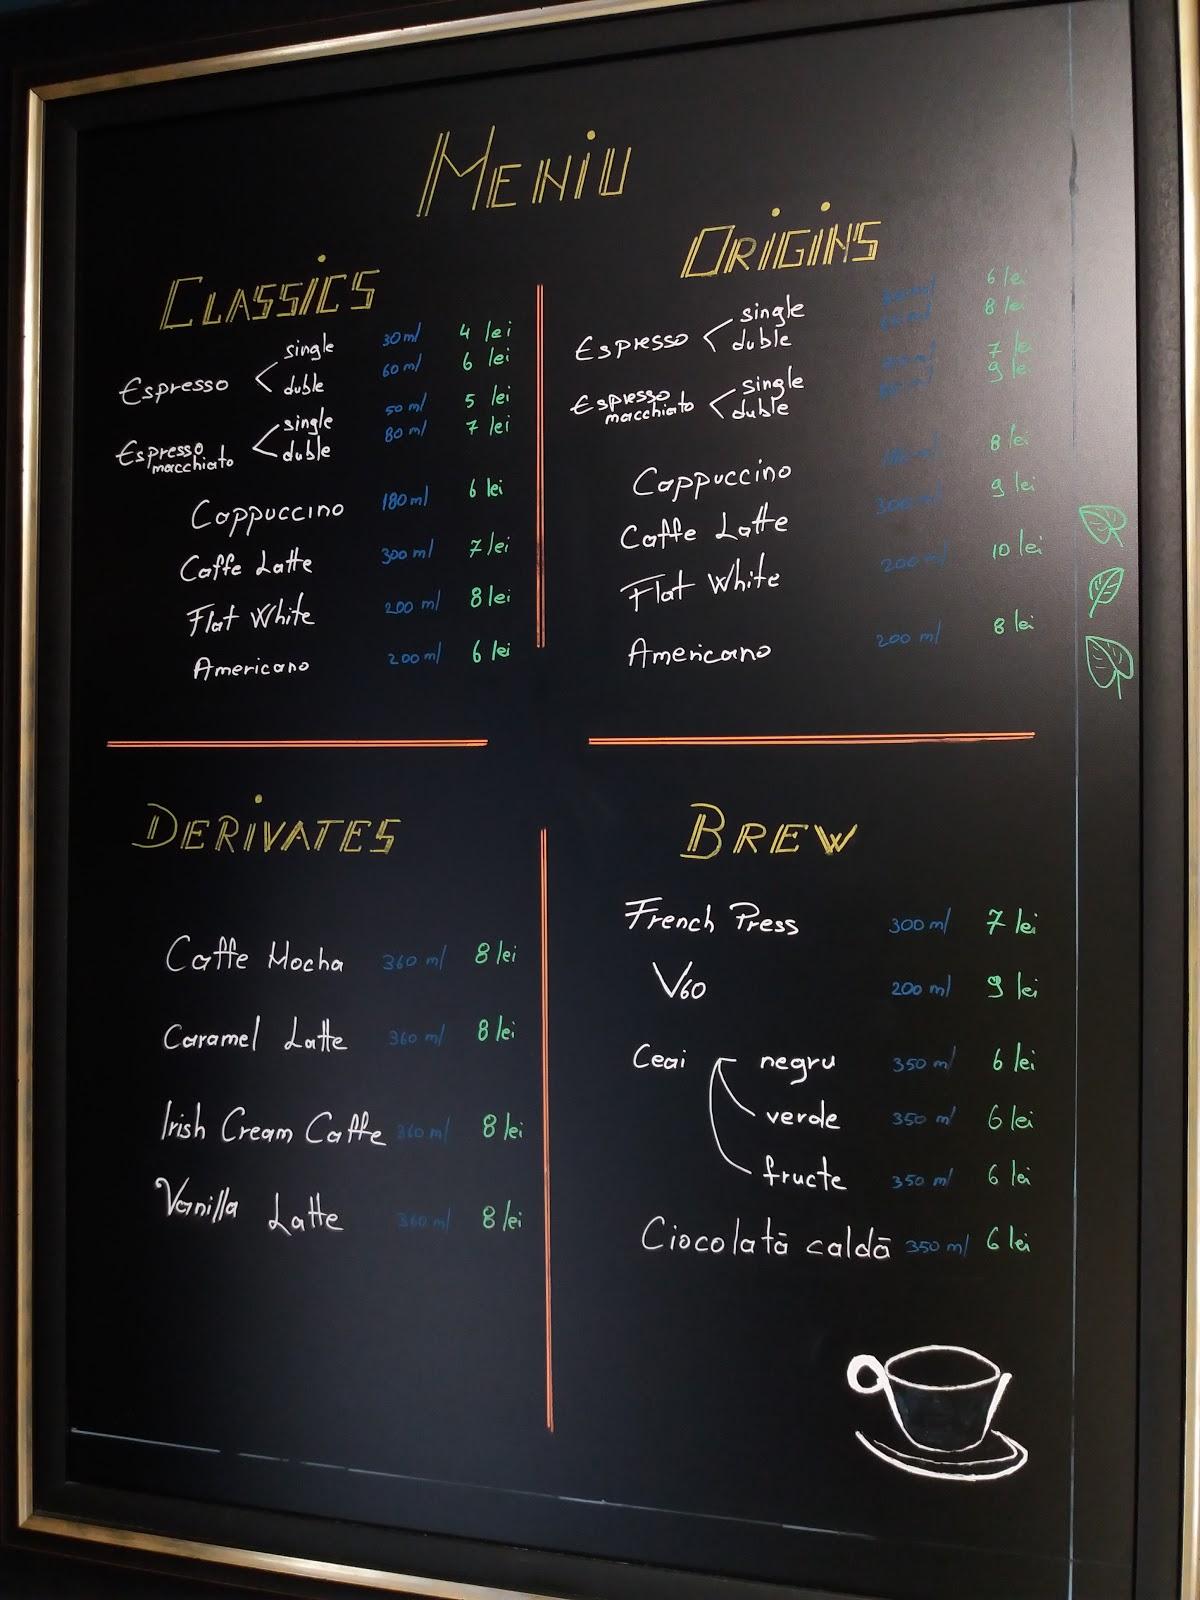 MENIU
CLASSICS
Espresso single 30 ml 4 lei
duble 60 ml 6 lei
Espresso macchiato single 50 ml 5 lei
duble 80 ml 7 lei
Cappuccino 180 ml 6 lei
Caffe Latte 300 ml 7 lei
Flat White 200 ml 8 lei
Americano 200 ml 6 lei
ORIGINS
Espresso single 6 lei
duble 8 lei
Espresso macchiato single 7 lei
duble 9 lei
Cappuccino 180 ml 8 lei
Caffe Latte 300 ml 9 lei
Flat White 200 ml 10 lei
Americano 200 ml 8 lei
DERIVATES
Caffe Mocha 360 ml 8 lei
Caramel Latte 360 ml 8 lei
Irish Cream Caffe 360 ml 8 lei
Vanilla Latte 360 ml 8 lei
BREW
French Press 300 ml 7 lei
V60 200 ml 9 lei
Ceai negru 350 ml 6 lei
verde 350 ml 6 lei
fructe 350 ml 6 lei
Ciocolată caldă 350 ml 6 lei